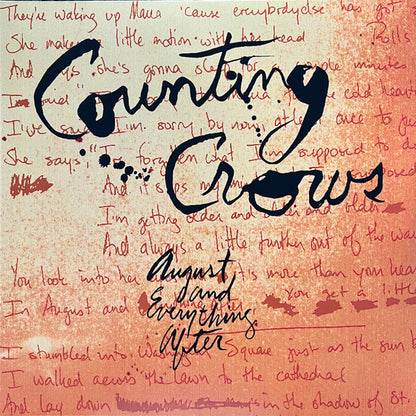 They're waking up Maria 'cause everybody else has got
She makes a little motion with her head Rolls
And says she's gonna sleep for a couple minutes
I the cold heart
I've said I'm sorry by now at least once to just
She says "I forgotten what I'm supposed to do
And it slips my
I'm getting older and older and older
And always a little further out of the way
You look into her it's more than your hea
In August and you get a little
I stumbled into Washington Square just as the sun b
I walked across the lawn to the cathedral
And lay down in the shadow of St.
Counting
Crows
August
and
Everything
After